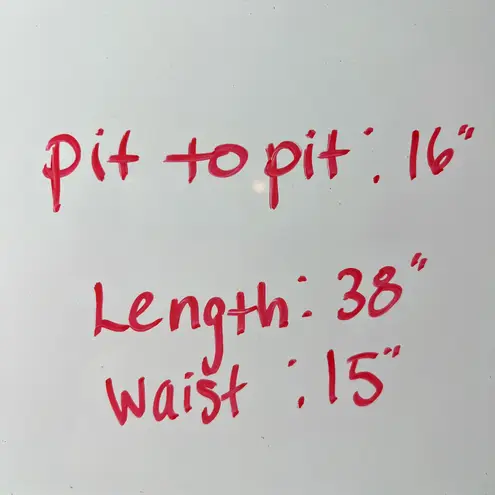 pit to pit: 16"
Length: 38"
Waist: 15"